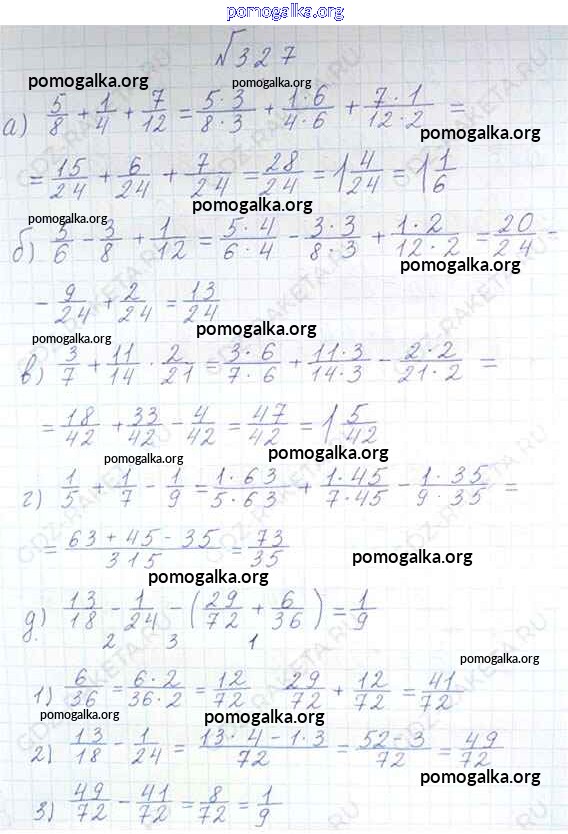 pomogalka.org
№327
pomogalka.org
а) 5/8 + 1/4 + 7/12 = 5·3/8·3 + 1·6/4·6 + 7·1/12·2 =
pomogalka.org
= 15/24 + 6/24 + 7/24 = 28/24 = 1 4/24 = 1 1/6
pomogalka.org
pomogalka.org
б) 5/6 - 3/8 + 1/12 = 5·4/6·4 - 3·3/8·3 + 1·2/12·2 = 20/24 -
pomogalka.org
- 9/24 + 2/24 = 13/24
pomogalka.org
pomogalka.org
в) 3/7 + 11/14 · 2/21 = 3·6/7·6 + 11·3/14·3 - 2·2/21·2 =
= 18/42 + 33/42 - 4/42 = 47/42 = 1 5/42
pomogalka.org
pomogalka.org
г) 1/5 + 1/7 - 1/9 = 1·63/5·63 + 1·45/7·45 - 1·35/9·35 =
= 63+45-35/315 = 73/35
pomogalka.org
pomogalka.org
д) 13/18 - 1/24 - (29/72 + 6/36) = 1/9
2 3 1
pomogalka.org
1) 6/36 = 6·2/36·2 = 12/72 29/72 + 12/72 = 41/72
pomogalka.org
pomogalka.org
2) 13/18 - 1/24 = 13·4-1·3/72 = 52-3/72 = 49/72
pomogalka.org
3) 49/72 - 41/72 = 8/72 = 1/9
GDZ-RAKETA.RU